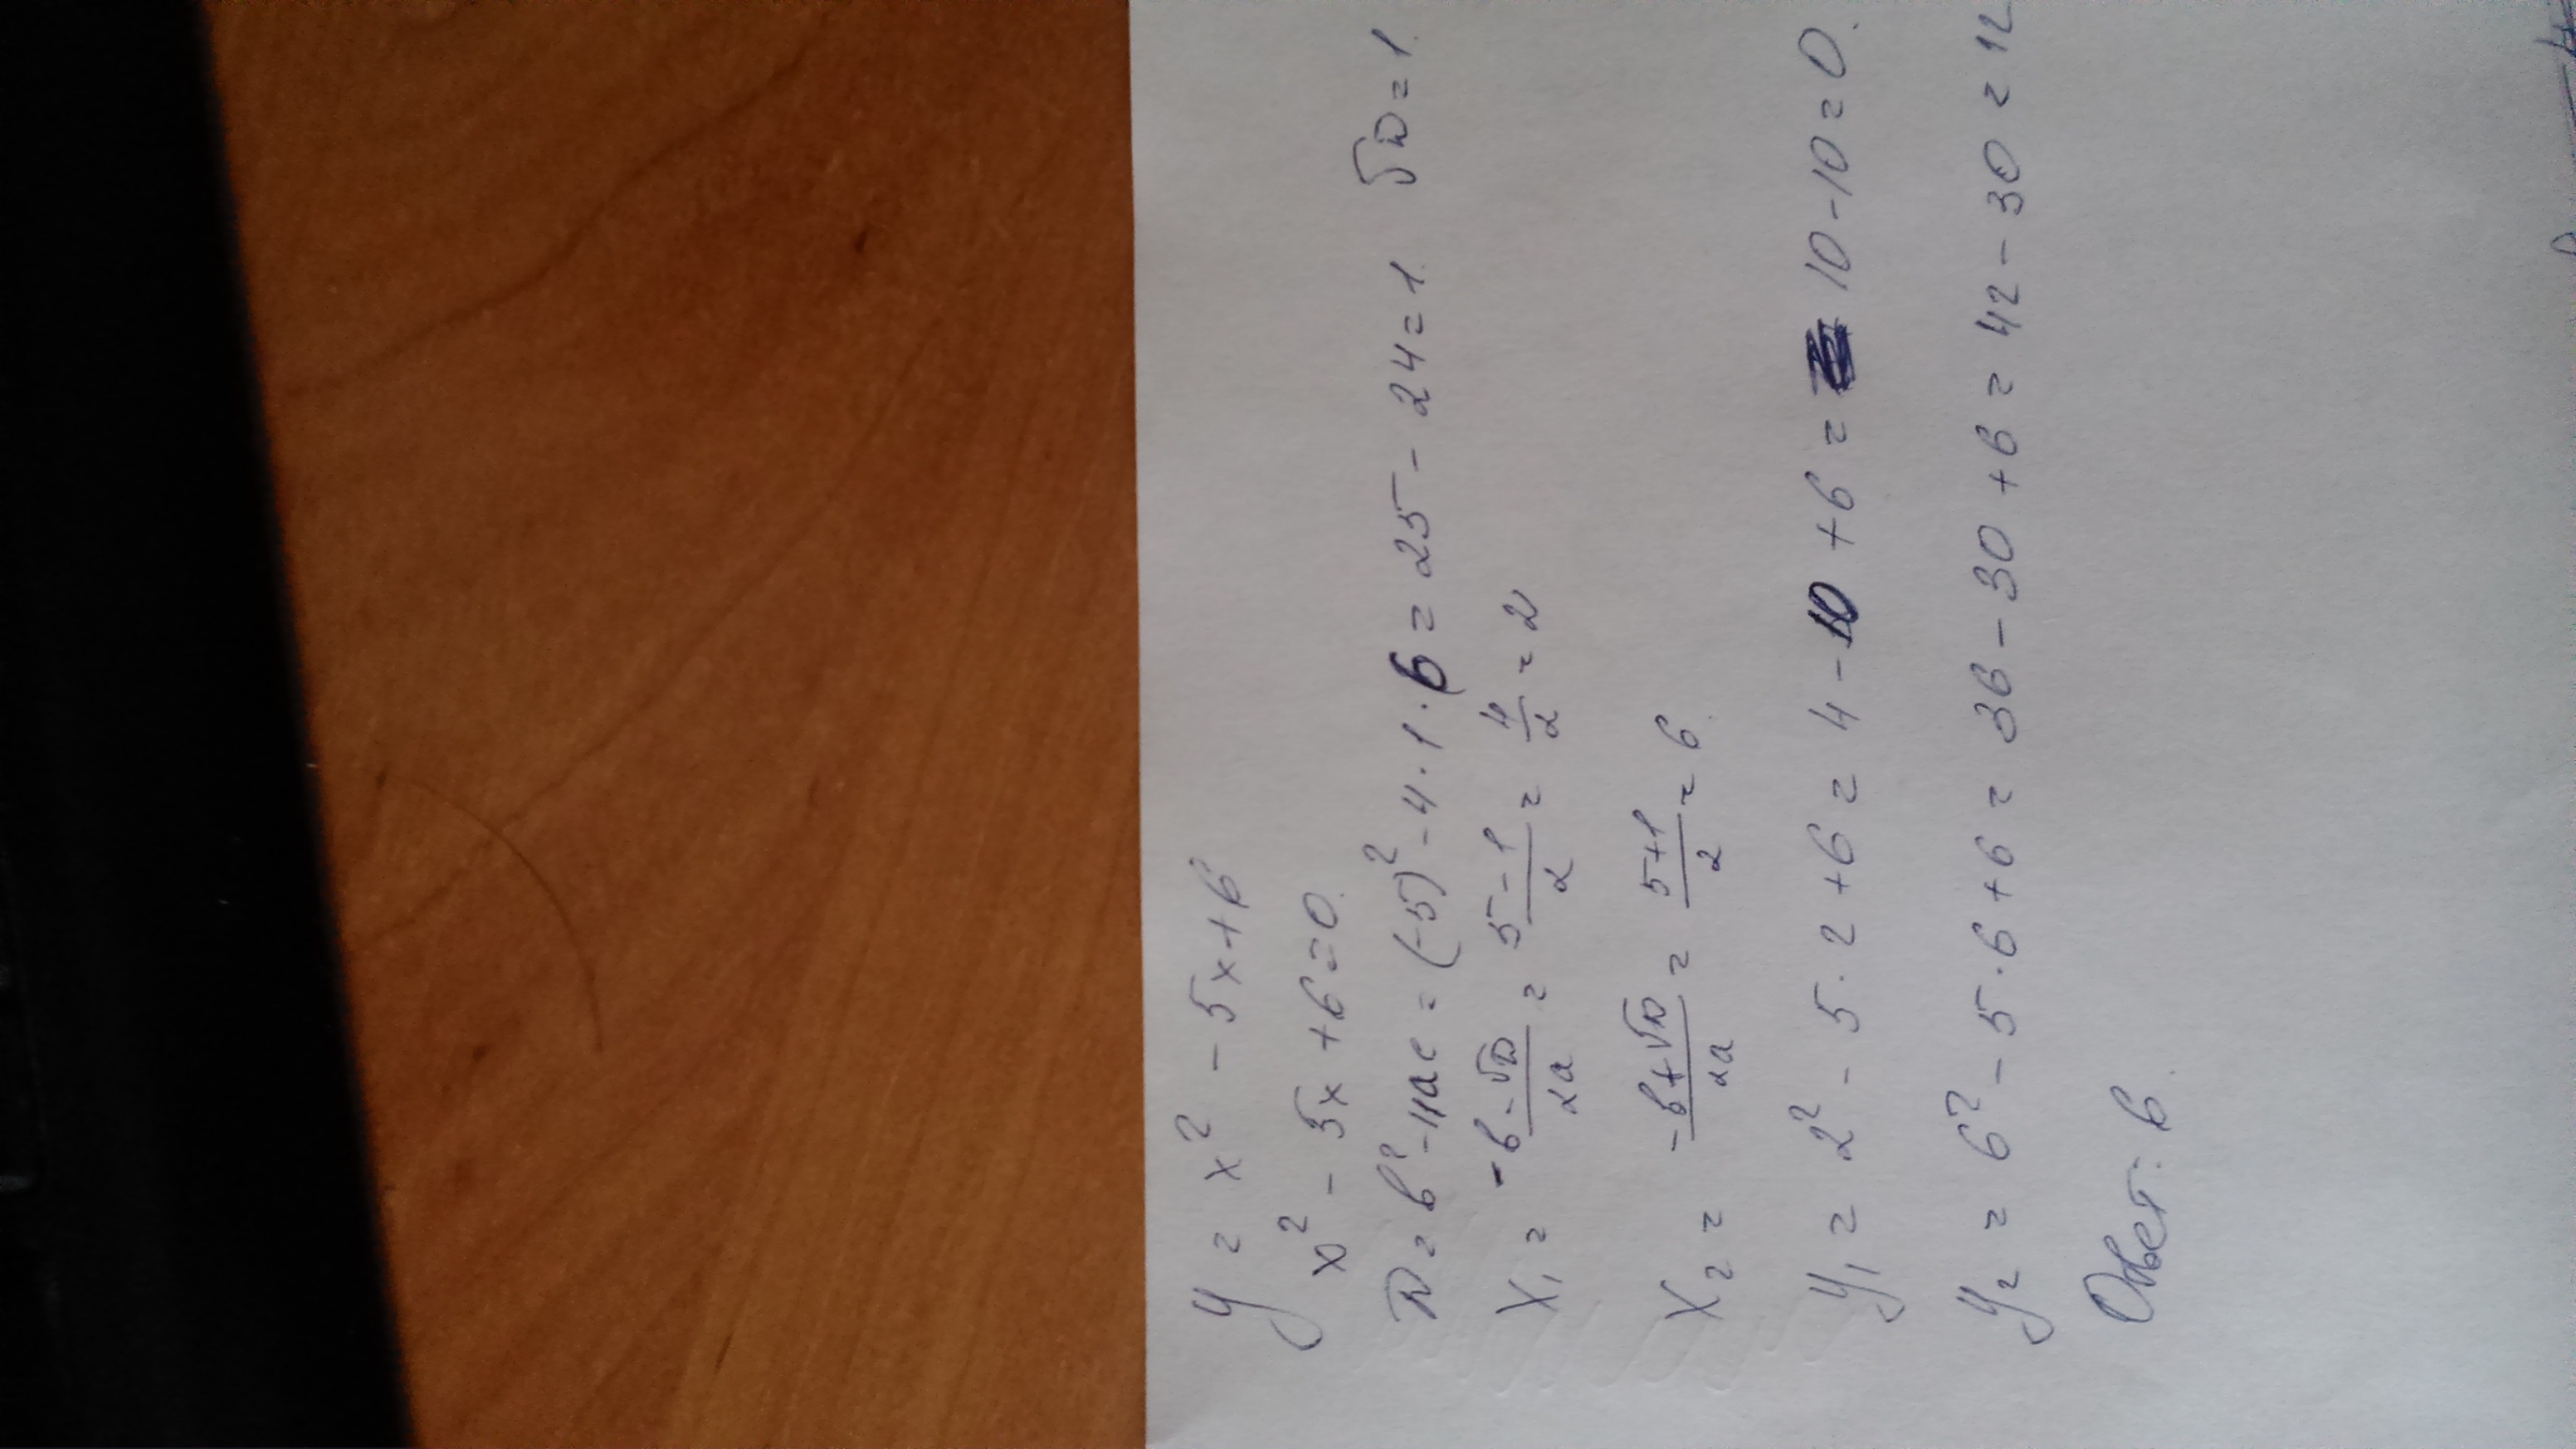 y = x² - 5x + 6
x² - 5x + 6 = 0.
D = b² - 4ac = (-5)² - 4 · 1 · 6 = 25 - 24 = 1. √D = 1.
x₁ = (-b - √D)/2a = (5 - 1)/2 = 4/2 = 2
x₂ = (-b + √D)/2a = (5 + 1)/2 = 6.
y₁ = 2² - 5 · 2 + 6 = 4 - 10 + 6 = 10 - 10 = 0.
y₂ = 6² - 5 · 6 + 6 = 36 - 30 + 6 = 42 - 30 = 12
Ответ: б.